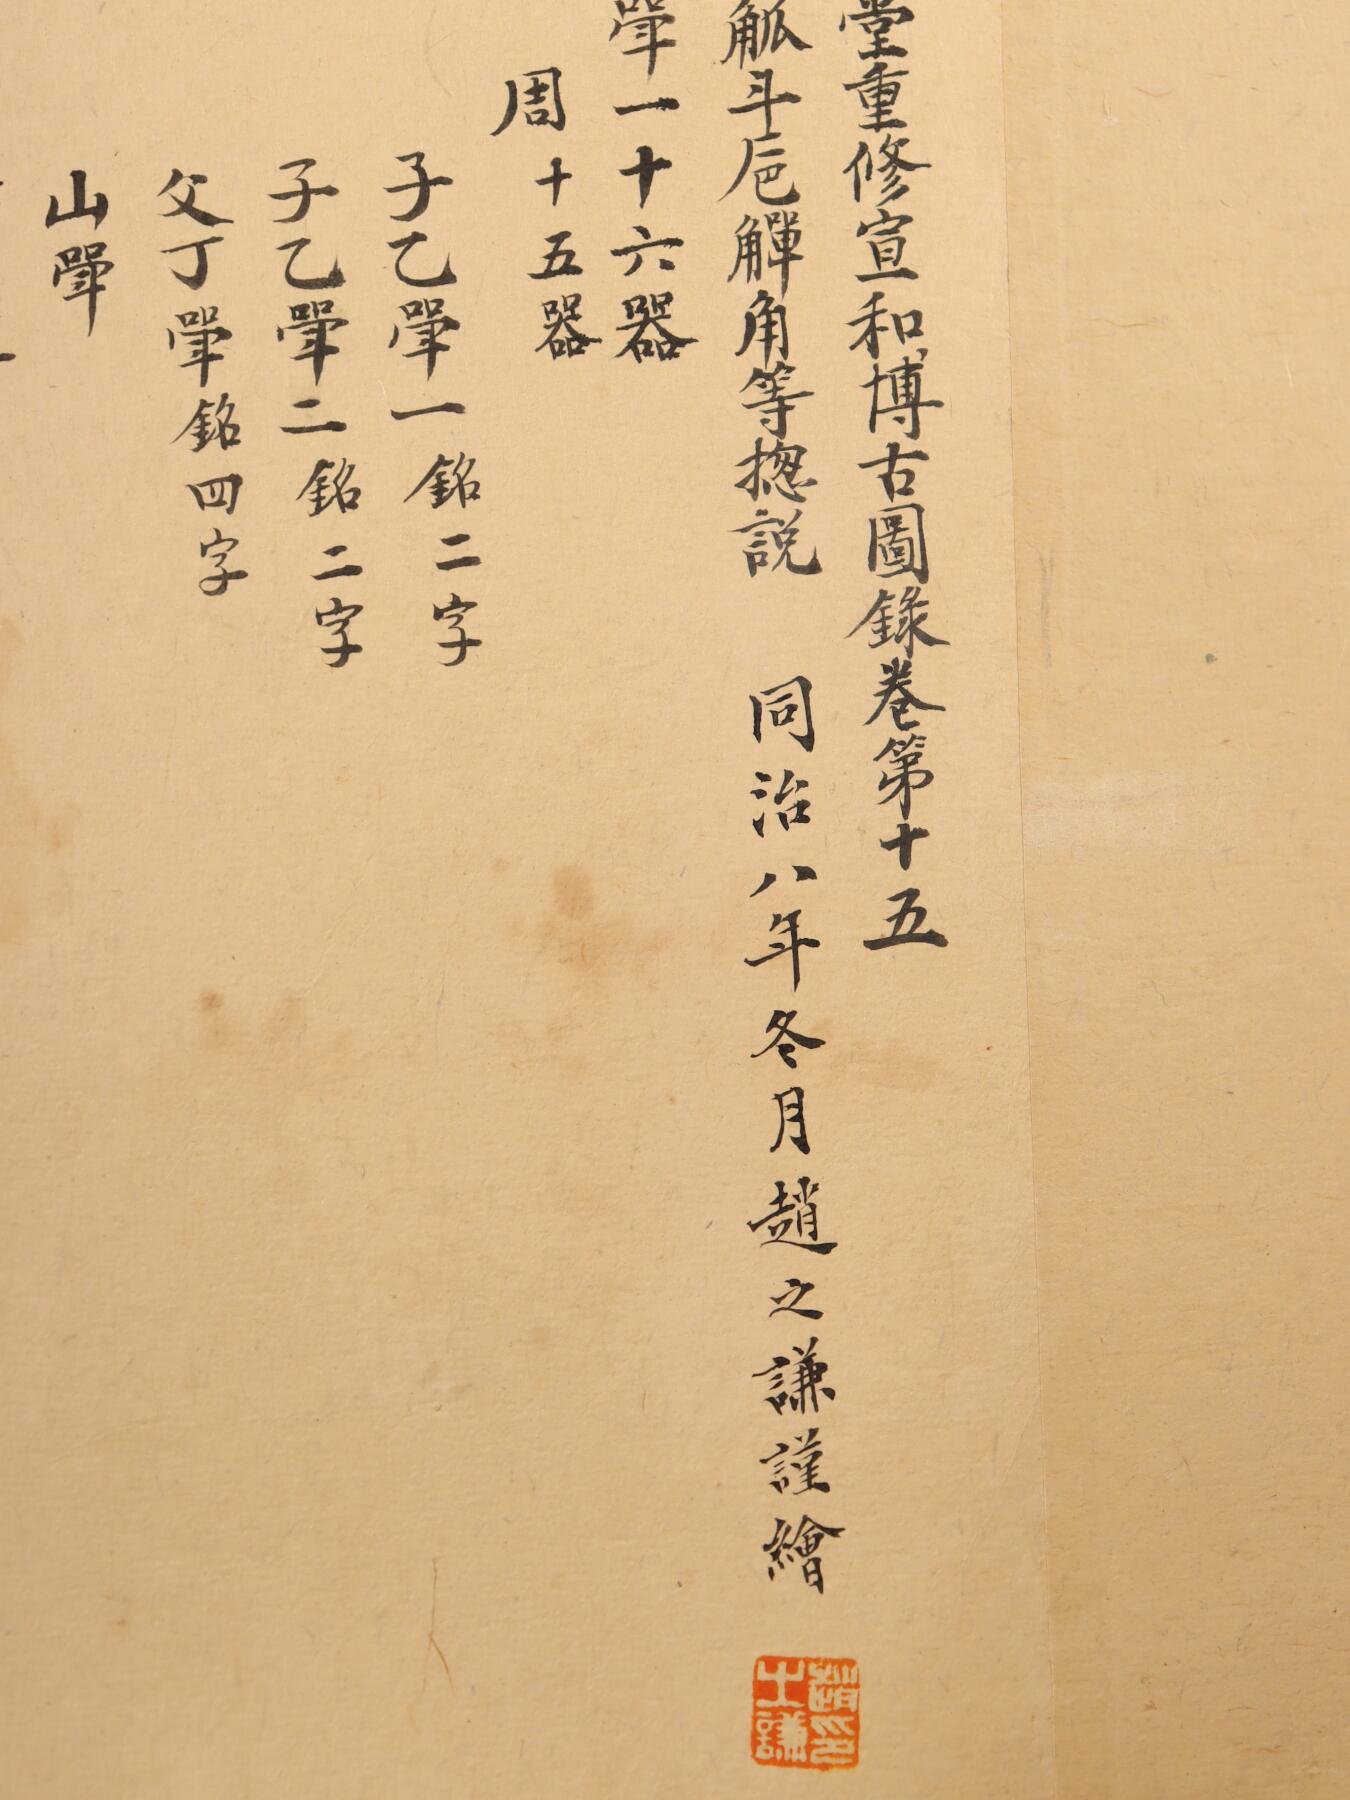 堂重修宣和博古圖錄卷第十五
觚斗巵觶角等摠説
同治八年冬月趙之謙謹繪
斝一十六器
周十五器
子乙斝一銘二字
子乙斝二銘二字
父丁斝銘四字
山斝
趙之謙印